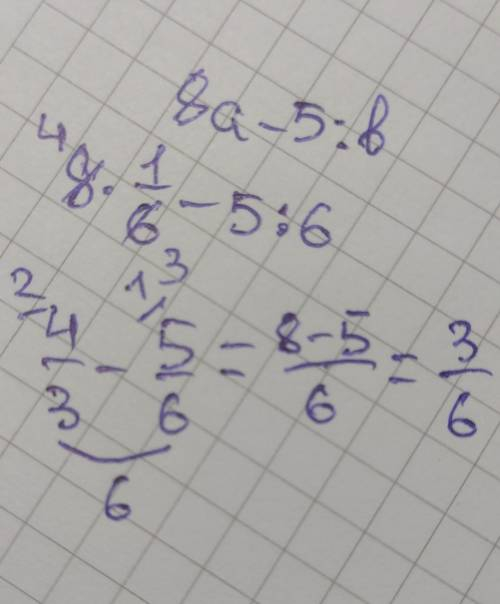 8a - 5 : b
4
8 · 1/6 - 5 : 6
3
2 1
4/3 - 5/6 = 8-5/6 = 3/6
6